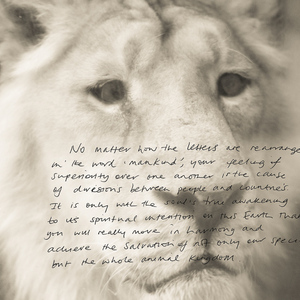 No matter how the letters are rearrange
in the word 'mankind', your feeling of
superiority over one another is the cause
of divisions between people and countries
It is only with the soul's true awakening
to its spiritual intention on this Earth that
you will really move in harmony and
achieve the Salvation of not only our speci
but the whole animal kingdom